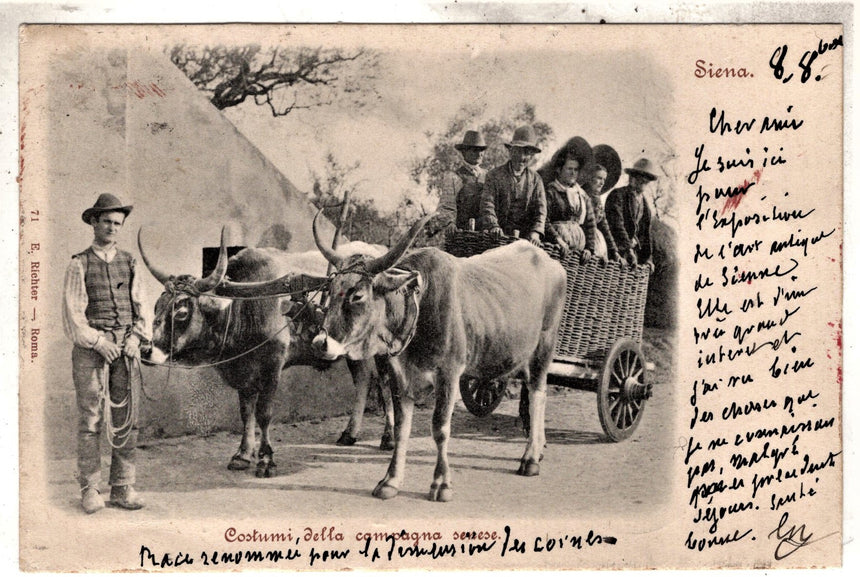 Siena. 8. 8bre
Cher ami
Je suis ici
pour
l'Exposition
de l'art antique
de Sienne
Elle est d'un
très grand
interet et
j'ai vu bien
des choses que
je ne connaissais
pas, malgré
précédents
séjours. Santé
bonne.
71 E. Richter — Roma.
Costumi della campagna senese.
Race renommée pour la dimension des cornes